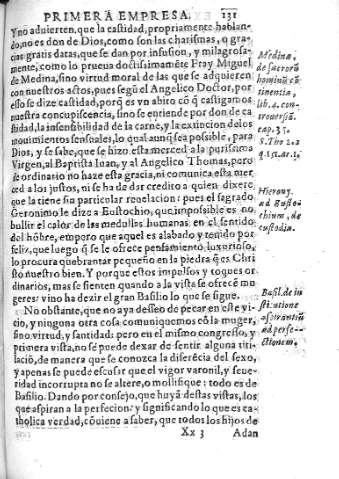 PRIMERA EMPRESA. 131
Y no aduierten, que la castidad, propriamente hablan-
do, no es don de Dios, como son las charismas, o gra-
cias gratis datas, que se dan por infusion, y milagrosa-
mente, como lo prueua doctissimamẽte Fray Miguel
de Medina, sino virtud moral de las que se adquieren
con nuestros actos, pues segũ el Angelico Doctor, por
esso se dize castidad, porq̃ es vn abito cõ q̃ castigamos
nuestra concupiscencia, sino se entiende por don de ca
stidad, la insensibilidad de la carne, y la extincion de los
mouimientos sensuales, lo qual aunq̃ sea possible, para
Dios, y se sabe, que se hizo esta merced a la purissima
Virgen, al Baptista Iuan, y al Angelico Thomas, pero
de ordinario no haze esta gracia, ni comunica esta mer
ced a los justos, ni se ha de dar credito a quien dixere
que la tiene sin particular reuelacion: pues el sagrado
Geronimo le dize a Eustochio, que impossible es no
bullir el calor de las medullas humanas en el sentido
del hõbre, empero que aquel es alabado y tenido por
feliz, que luego q̃ se le ofrece pensamiento luxurioso,
lo procura quebrantar pequeño en la piedra q̃ es Chri
sto nuestro bien. Y porque estos impulsos y toques or
dinarios, mas se sienten quando a la vista se ofrecẽ mu
geres: vino ha dezir el gran Basilio lo que se sigue.
No obstante, que no aya desseo de pecar en este vi-
cio, y ninguna otra cosa comuniquemos cõ la muger,
sino virtud, y santidad: pero en el mismo congresso, y
primera vista, no se puede dexar de sentir alguna titi-
laciõ, de manera que se conozca la diferẽcia del sexo,
y apenas se puede escusar que el vigor varonil, y seue-
ridad incorrupta no se altere, o mollifique: todo es de
Basilio. Dando por consejo, que huyã destas vistas, los
que aspiran a la perfecion: y significando lo que es ca-
tholica verdad, cõuiene a saber, que todos los hijos de
Xx 3 Adan
Medina,
de sacrorũ
hominũ cõ
tinentia,
lib. 4. con-
trouersiũ.
cap. 35.
S. Tho 2.2
q. 151. ar. 1.
Hierony.
ad Eusto
chium, de
custodia.
Basil. de in
stitutione
ad perfe-
ctionem.